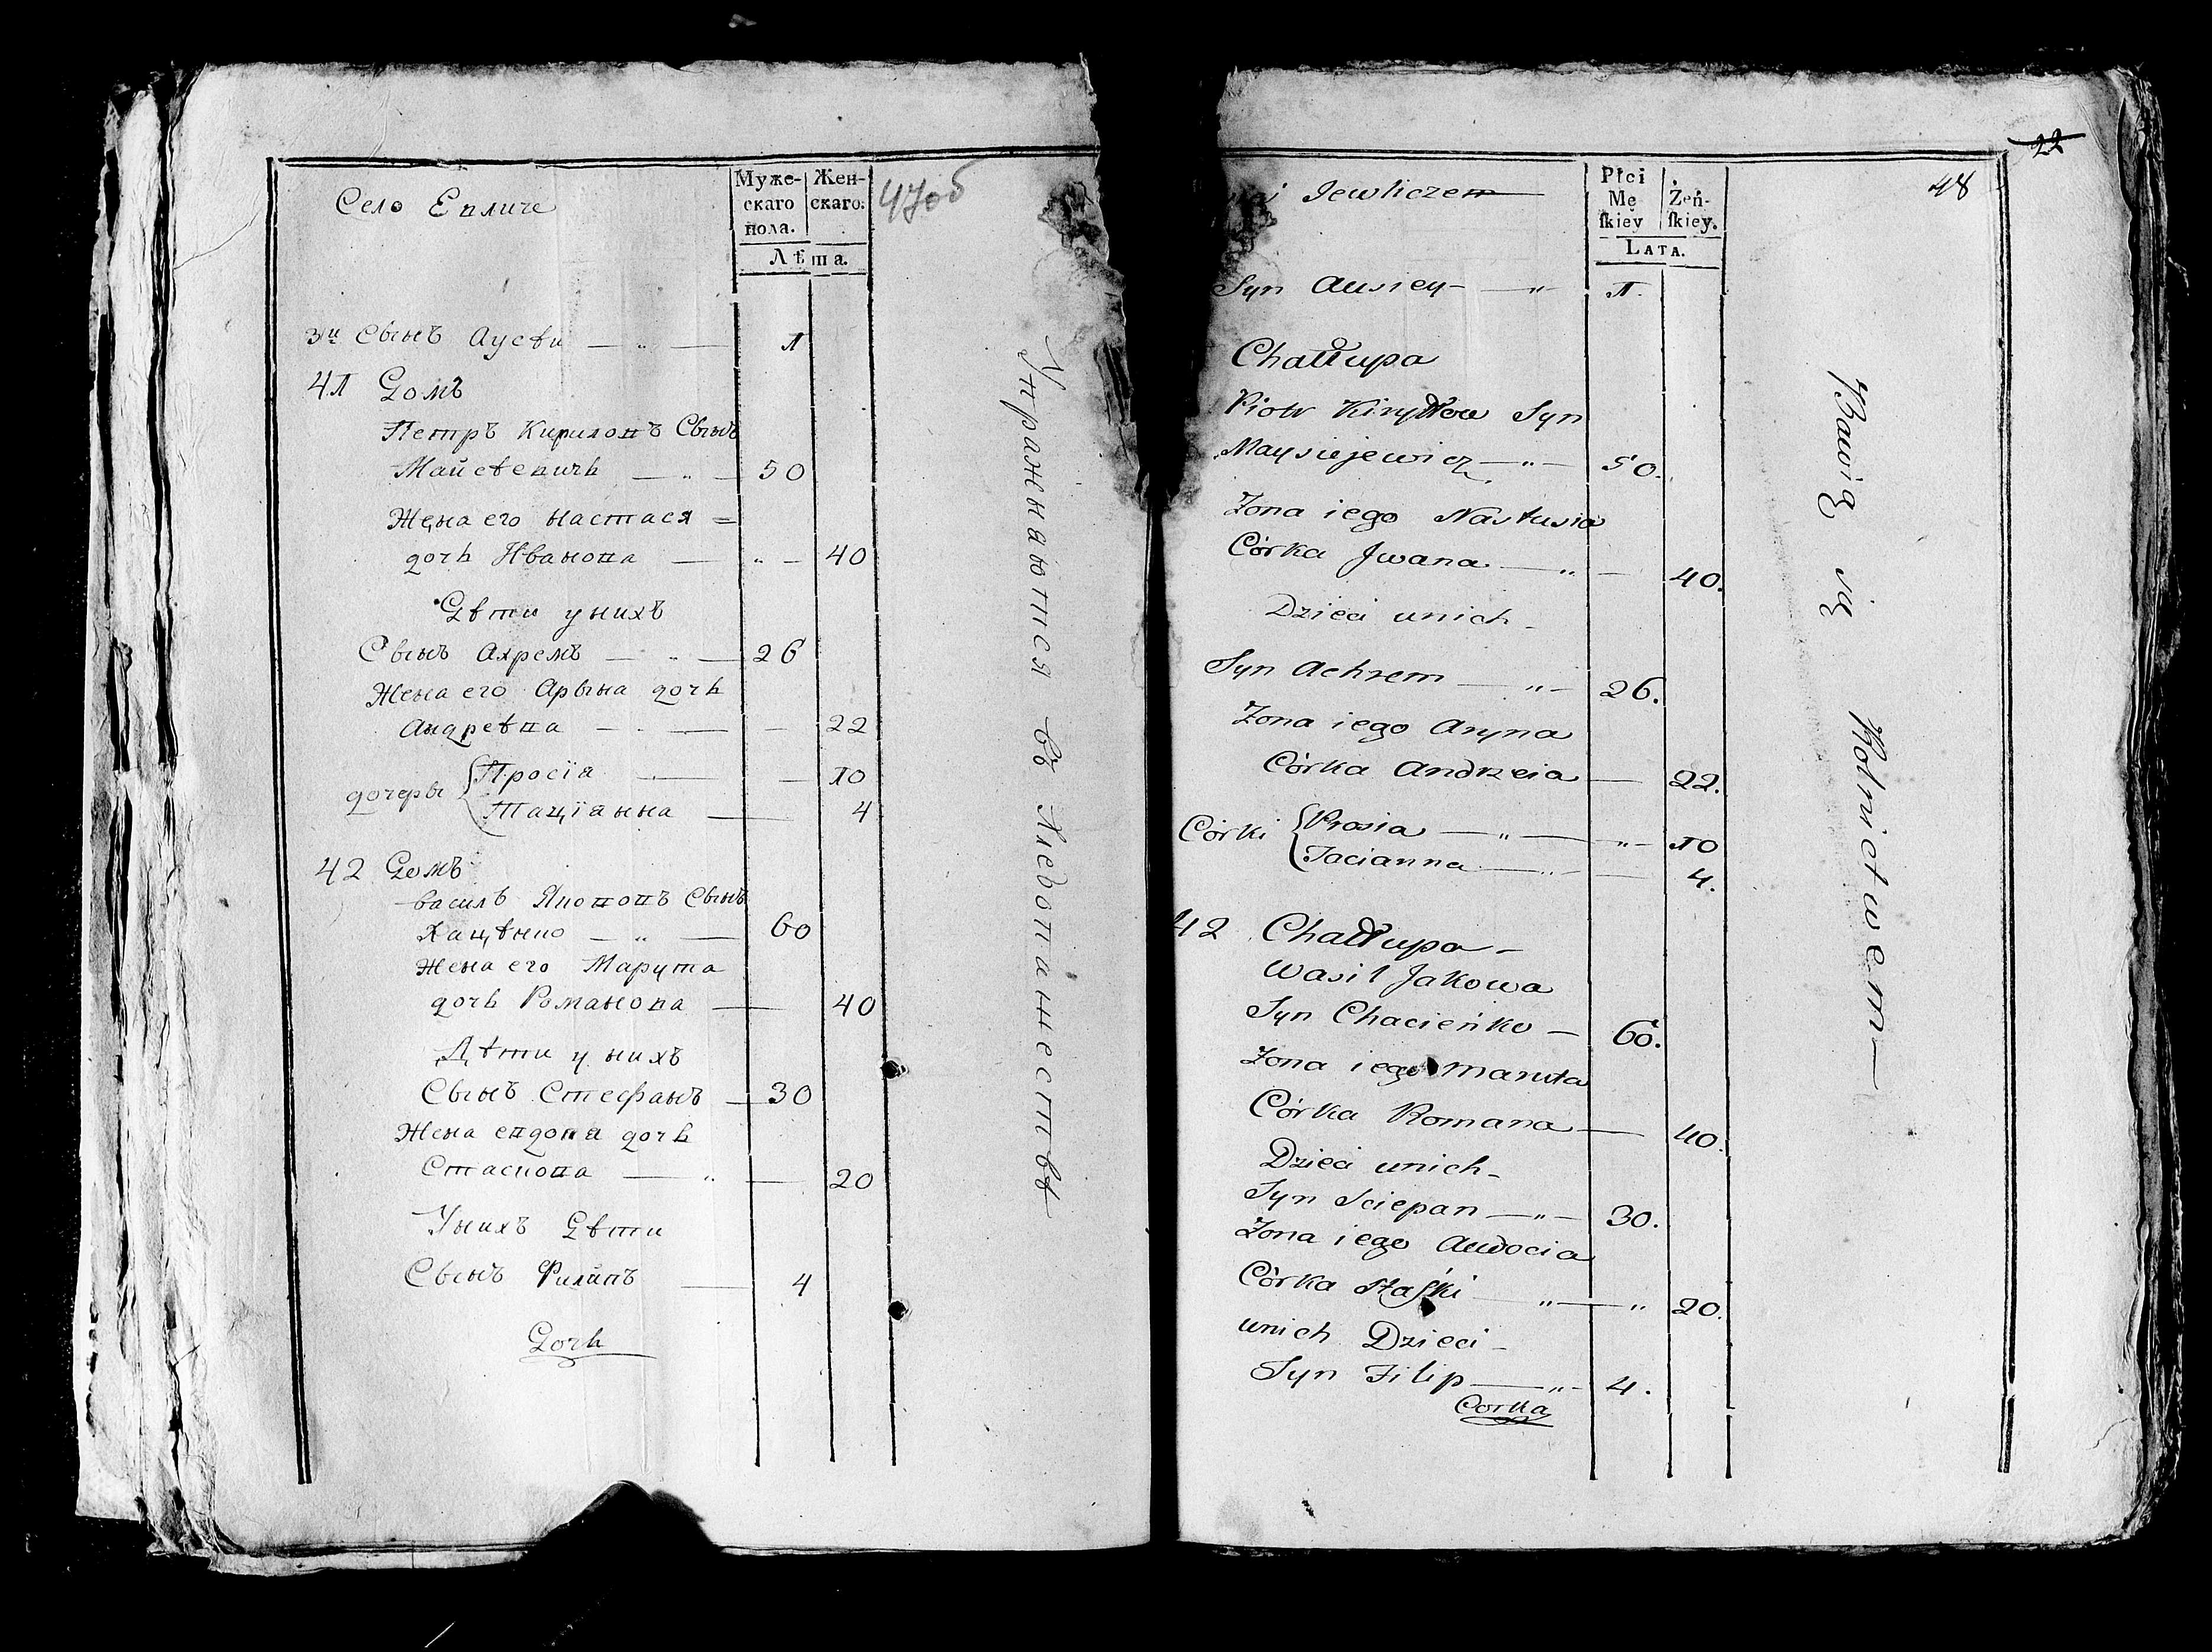 Село Евличе
Муже-
скаго
пола.
Жен-
скаго.
Лѣта.
47об
3й Сынъ Аусѣи — „ — 1
41 Домъ
Петръ Кириловъ Сынъ
Майсѣевичь — „ — 50
Жена его Настася =
дочь Иванова — „ — 40
Дѣти у нихъ
Сынъ Ахремъ — „ — 26
Жена его Арына дочь
Андреѣва — — — 22
дочеры { Просія — — 10
Таціянна — 4
42 Домъ
Василь Якововъ Сынъ
Хацѣнко — „ — 60
Жена его Марута
дочь Романова — 40
Дѣти у нихъ
Сынъ Стефанъ — 30
Жена евдокя дочь
Стаскова — „ — 20
У нихъ Дѣти
Сынъ Филипъ — 4
Дочь
Упражняются въ Хлебопашествѣ
Jewliczem
Płci
Mę
ſkiey
Żeń-
ſkiey.
Lata.
48
22
Syn Ausiey — „ 1.
Chałłupa
Piotr Kiryłłow Syn
Maysiejewicz — „ — 50.
Zona iego Nastusia
Córka Jwana — „ — 40.
Dzieci unich -
Syn Achrem — „ — 26.
Zona iego Aryna
Córka Andrzeia — 22.
Córki { Prosia — „ — „ — 10
Tacianna — „ — 4.
42 Chałłupa -
Wasil Jakowa
Syn Chacieńko — 60.
Zona iego Maruta
Córka Romana — 40.
Dzieci unich -
Syn Sciepan — „ — 30.
Zona iego Audocia
Córka Staſki „ — „ 20.
unich Dzieci -
Syn Filip — „ — 4.
Corka
Bawią się Rolnictwem —